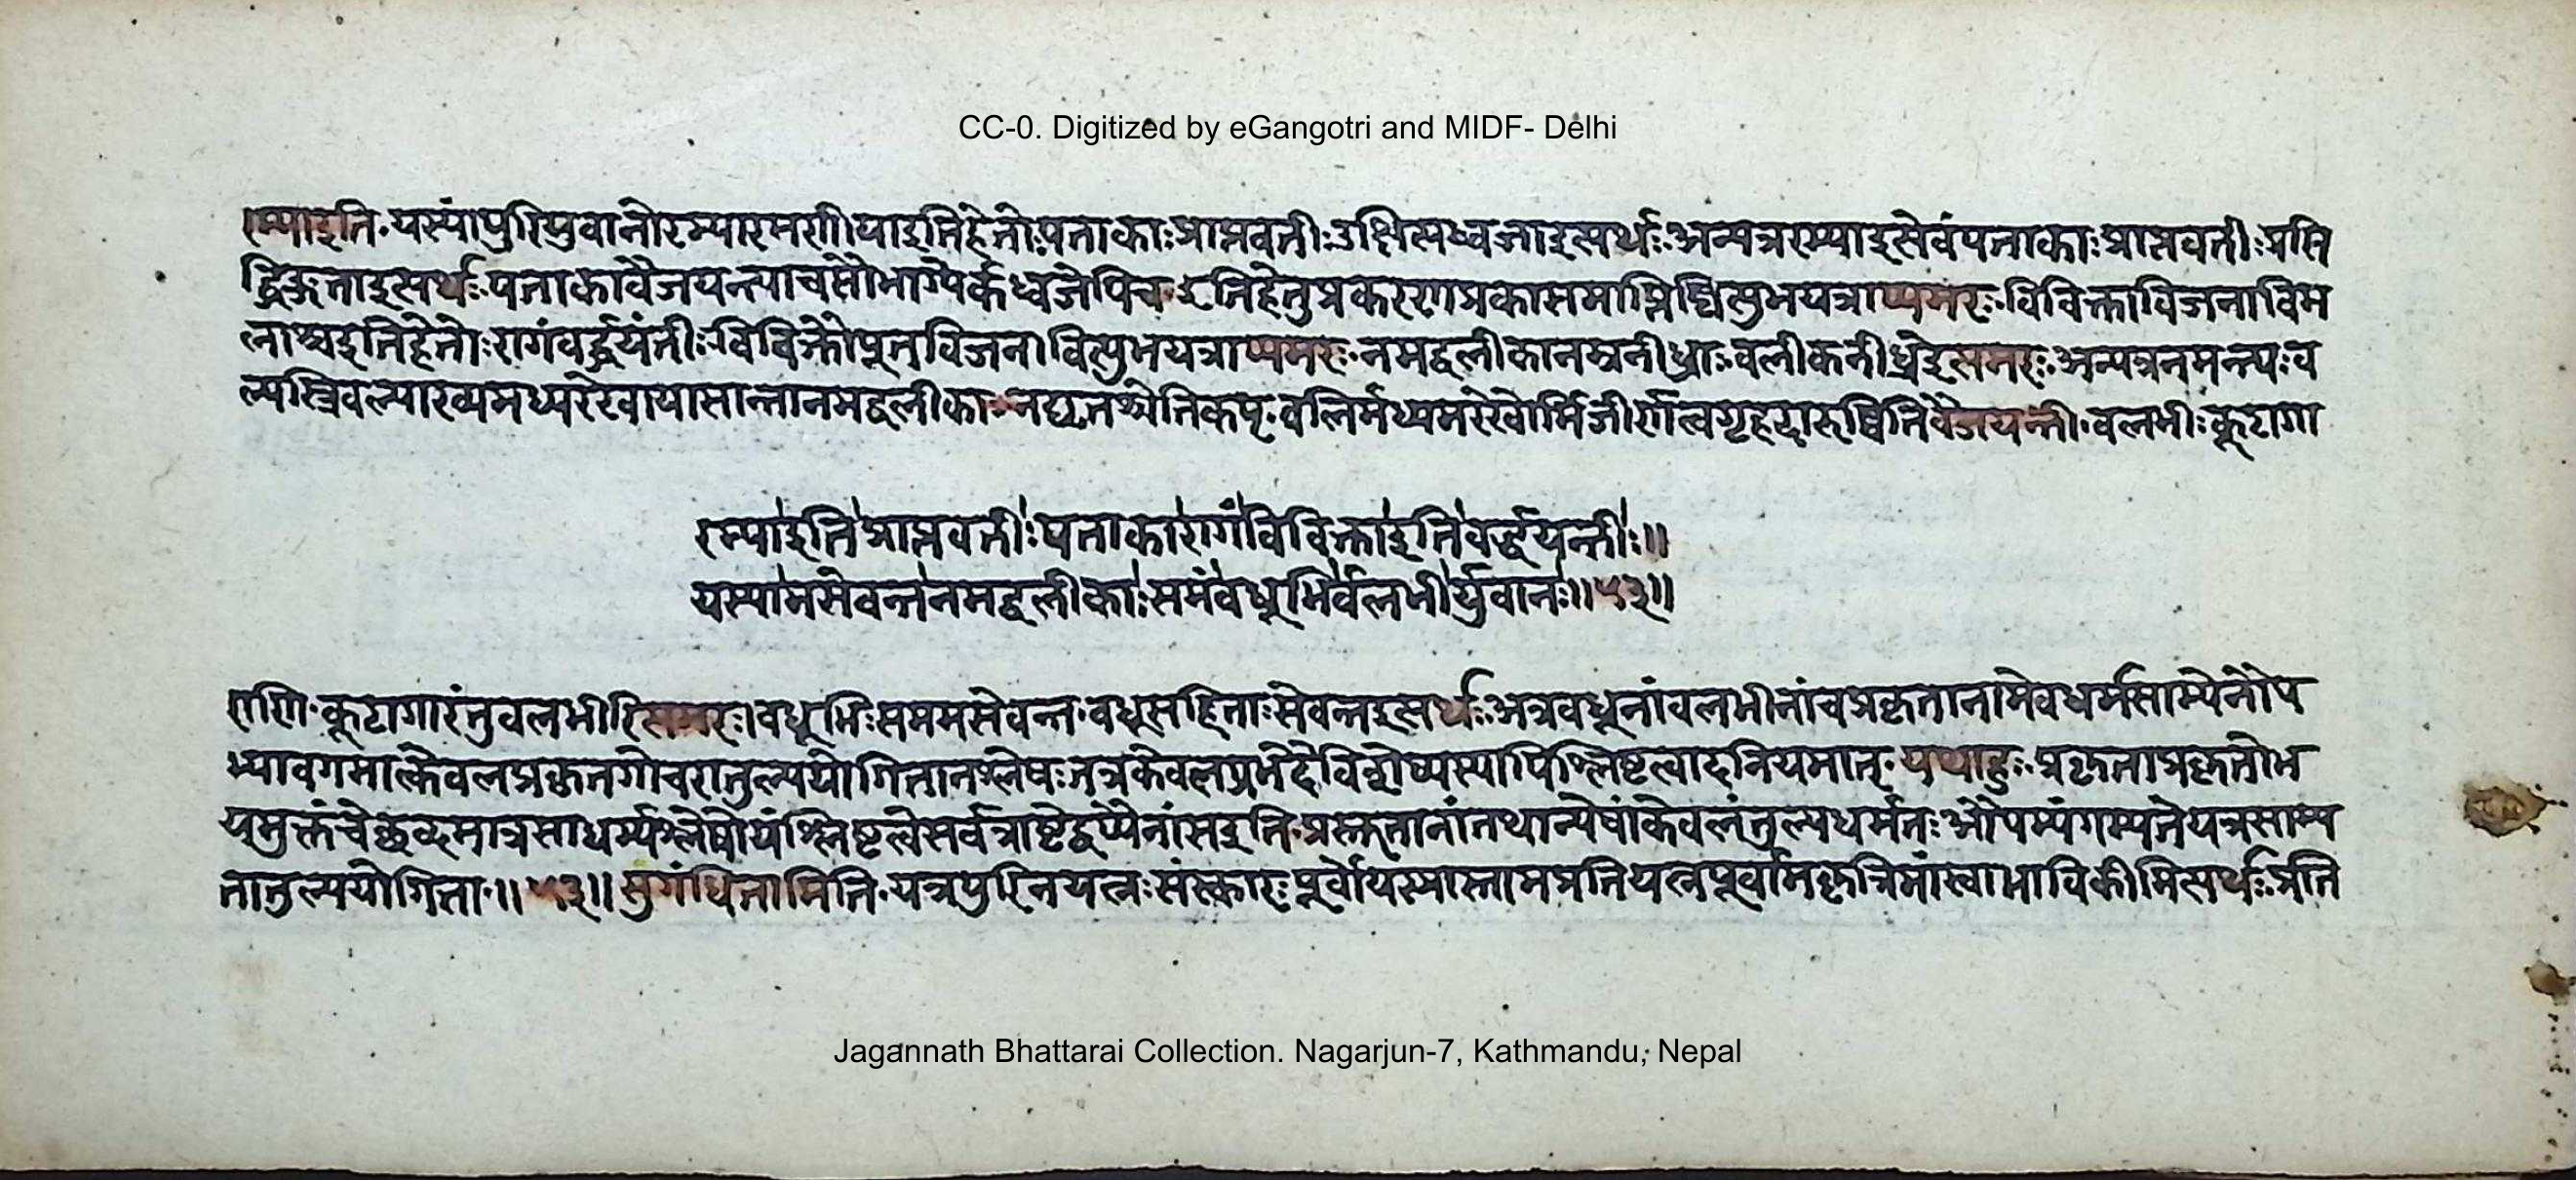 CC-0. Digitized by eGangotri and MIDF- Delhi
रम्याइति॰यस्यांपुरियुवानोरम्यारमणीयाइतिहेतोःपताकाःप्राप्तवतीःउक्षिप्तध्वजाइत्यर्थः॰अन्यत्ररम्याइत्येवंपताकाःप्राप्तवतीःप्रसि
द्धिङ्गताइत्यर्थः॰पताकावैजयन्त्याचसौभाग्येर्कध्वजेपिच॰इतिहेतुप्रकरणप्रकासमाप्तिष्वित्युभयत्राप्यमरः॰विविक्ताविजनाविम
लाश्चइतिहेतोःरागंवर्द्धयंतीःविविक्तौपूतविजनावित्युभयत्राप्यमरः॰नमद्वलीकानम्रनीध्राःवलीकनीध्रेइत्यमरः॰अन्यत्रनमन्त्यःव
ल्यस्त्रिवल्याख्यमध्यरेखायासान्तानमद्वलीका॰नद्यृतश्चेतिकप्॰वलिर्मध्यमरेखोर्मिजीर्णत्वगृहदारुष्वितिवैजयन्ती॰वलभीःकूटागा
रम्याइतिप्राप्तवतीःपताकारागंविविक्ताइतिवर्द्धयन्तीः॥
यस्यामसेवन्तनमद्वलीकाःसमंवधूभिर्वलभीर्युवानः॥५३॥
राणि॰कूटागारंतुवलभीरित्यमरः।वधूभिःसममसेवन्त॰वधुसहिताःसेवन्तइत्यर्थः॰अत्रवधूनांवलभीनांचप्रकृतानामेवधर्मसाम्येनौप
म्यावगमात्केवलप्रकृतगोचरातुल्ययोगितानश्लेषःतत्रकेवलप्रभेदेविशेष्यस्यापिश्लिष्टत्वादनियमात्॰यथाहुः॰प्रकृताप्रकृतोभ
यमुक्तंचेछब्दमात्रसाधर्म्यश्लेषोयंश्लिष्टत्वेसर्वत्राद्येद्वयेनांसइति॰प्रस्तुतानांतथान्येषांकेवलंतुल्यधर्मतःऔपम्यंगम्यतेयत्रसाम्य
तातुल्ययोगिता॰॥५३॥सुगंधितामिति॰यत्रपुरिनयत्नःसंस्कारःपूर्वोयस्यास्तामप्रतियत्नपूर्वामकृत्रिमांस्वाभाविकीमित्यर्थः॰प्रति
Jagannath Bhattarai Collection. Nagarjun-7, Kathmandu, Nepal